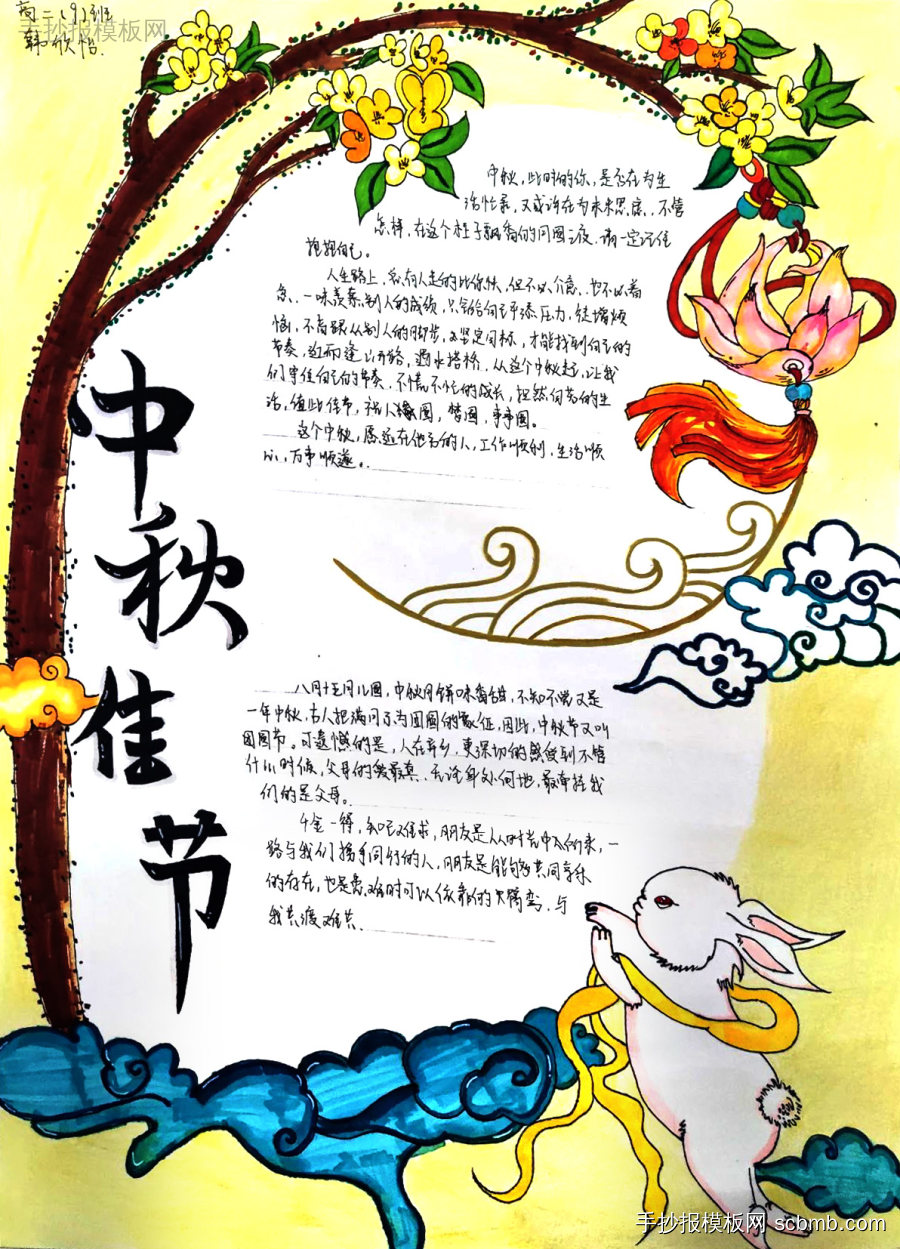 高二(9)班
韩欣怡
手抄报模板网
中秋佳节
中秋,此时的你,是否在为生
活忙碌,又或许在为未来思虑,不管
怎样,在这个桂子飘香的月圆之夜,请一定记住
抱抱自己。
人生路上,总有人走的比你快,但不必介意,也不必着
急,一味羡慕别人的成绩,只会给自己平添压力,徒增烦
恼,不盲跟从别人的脚步,坚定目标,才能找到自己的
节奏,进而逢山开路,遇水搭桥,从这个中秋起,让我
们守住自己的节奏,不慌不忙的成长,坦然自若的生
活,值此佳节,祝人缘圆,梦圆,事事圆。
这个中秋,愿远在他乡的人,工作顺利,生活顺
心,万事顺遂。
八月十五月儿圆,中秋月饼味香甜,不知不觉又是
一年中秋,古人把满月视为团圆的象征,因此,中秋节又叫
团圆节。可遗憾的是,人在异乡,更深切的感受到不管
什么时候,父母的爱最真,无论身处何地,最牵挂我
们的是父母。
千金一得,知己难求,朋友是从时光中入的来,一
路与我们携手同行的人,朋友是能够共同享乐
的存在,也是患难时可以依靠的大臂弯,与
我共渡难关
手抄报模板网 scbmb.com